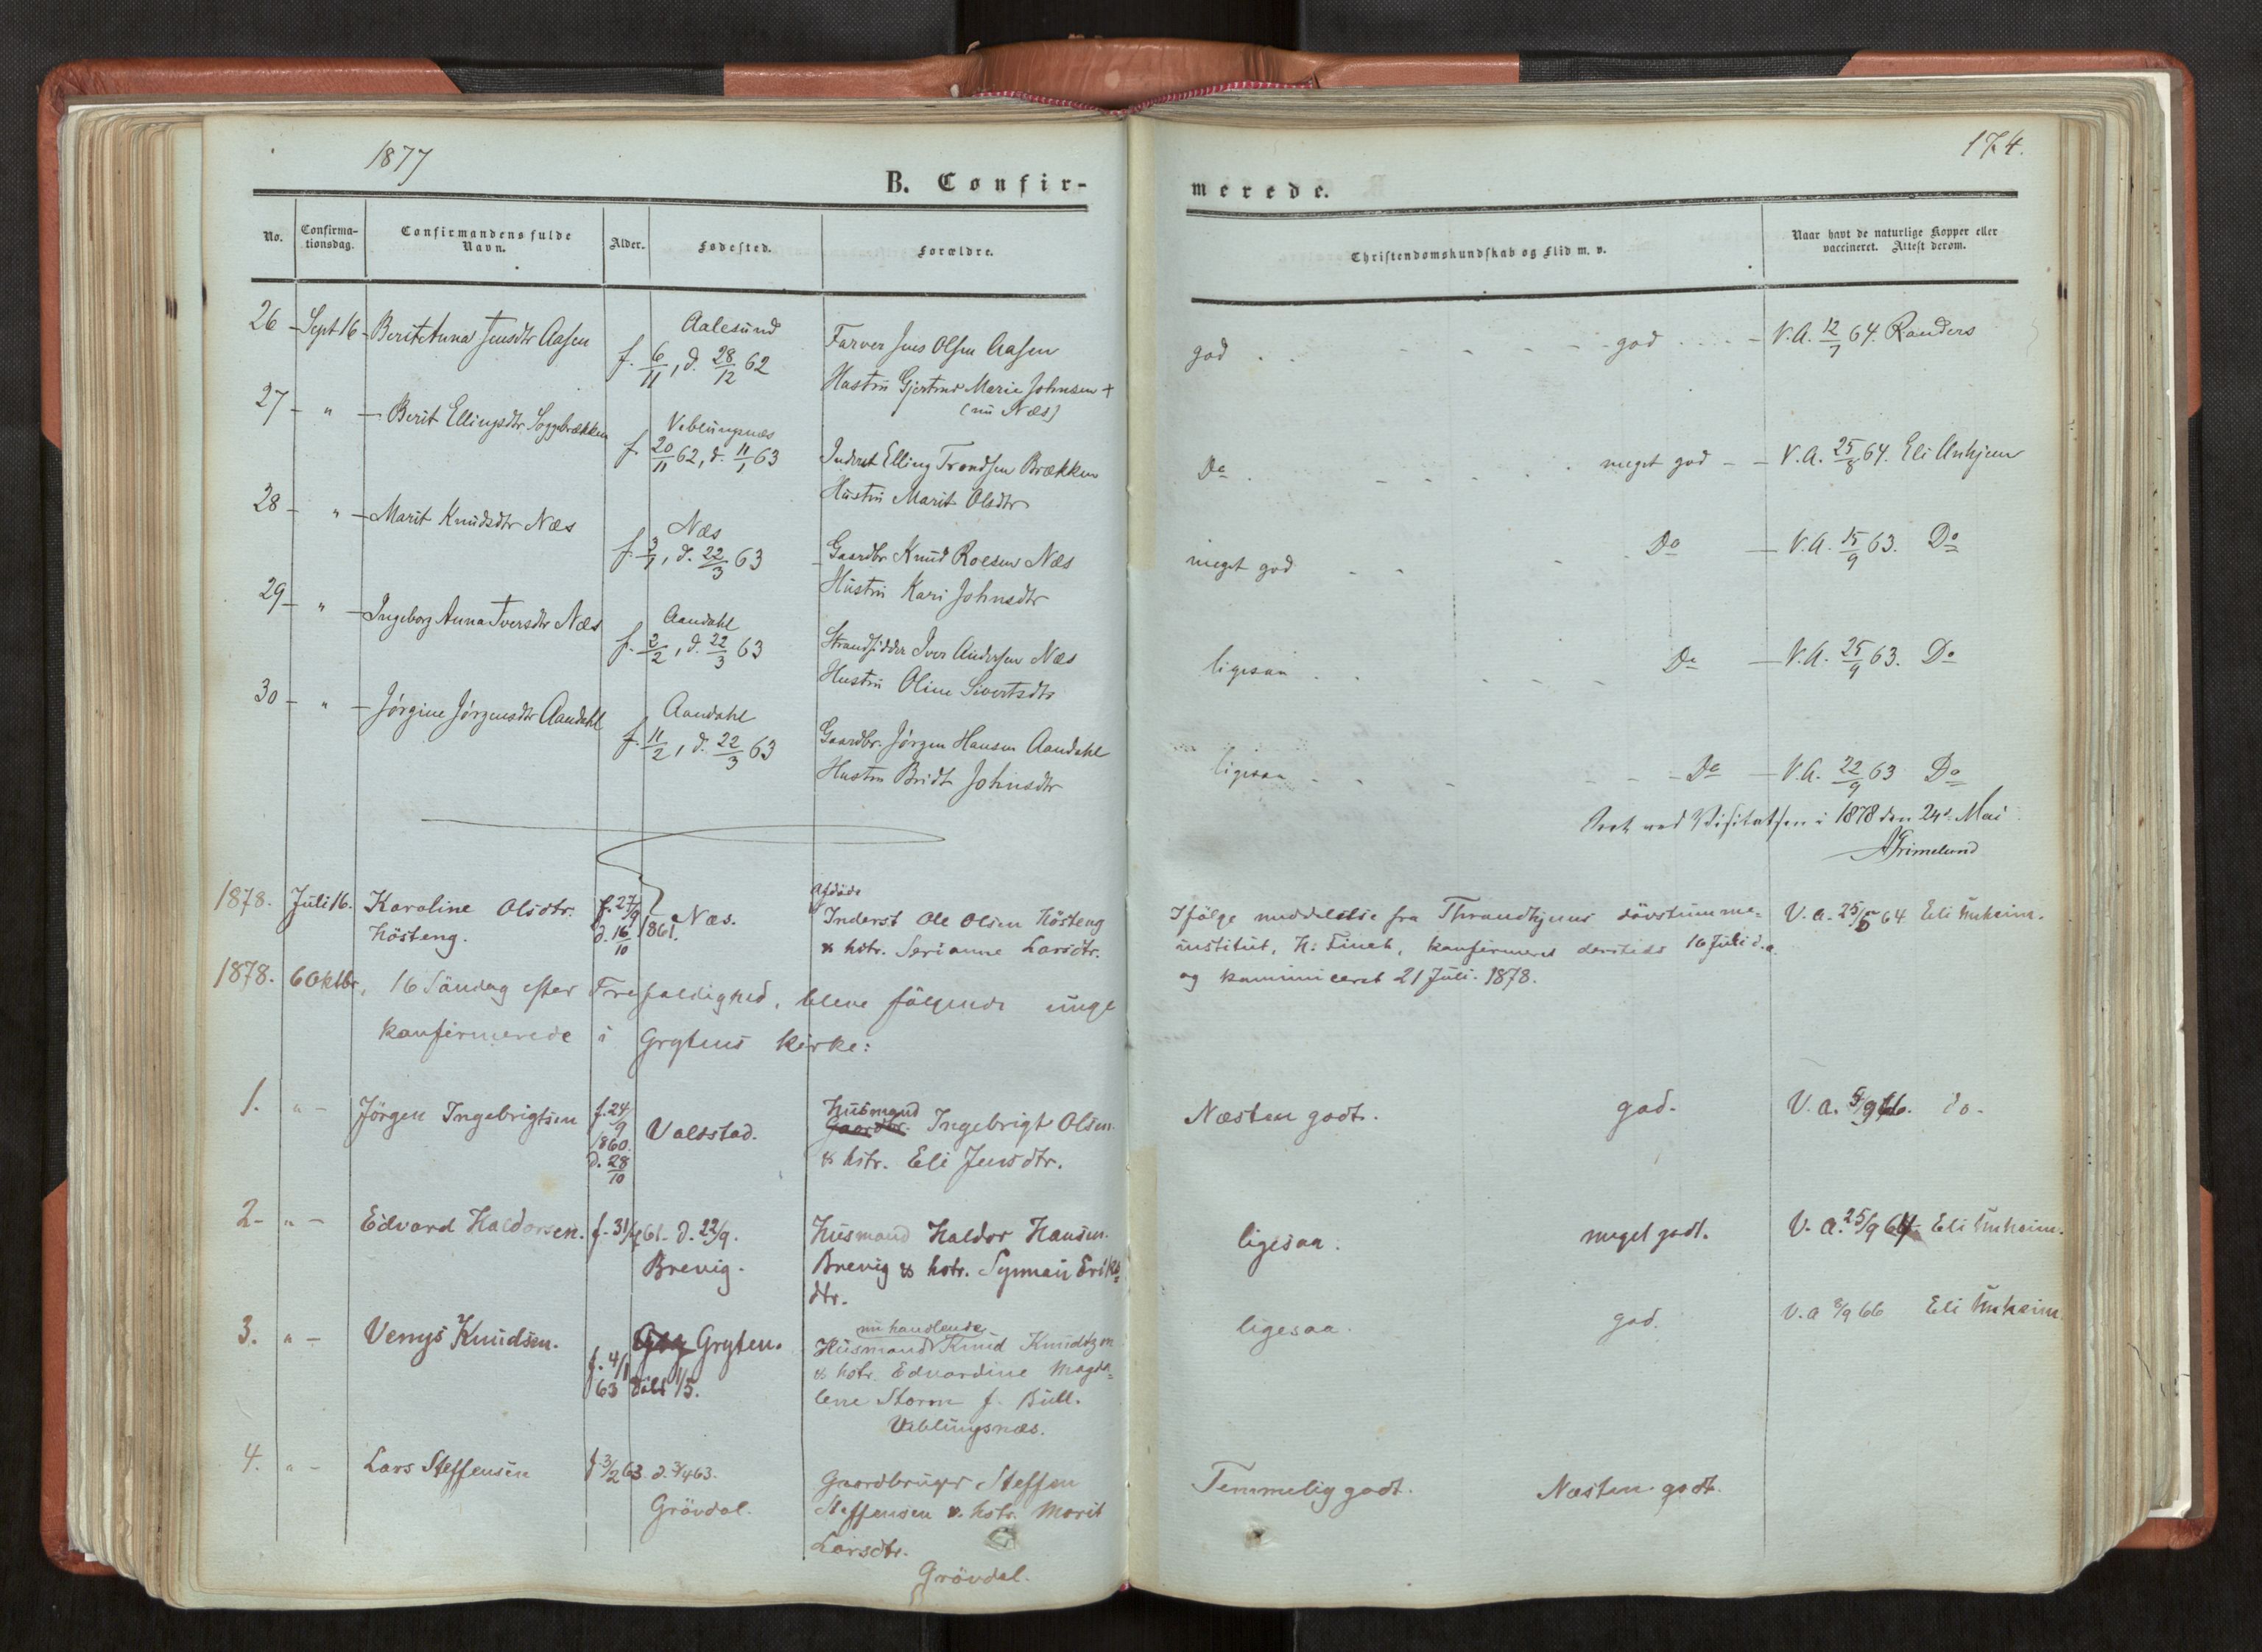 1877
174.
B. Confir-
merede.
No.
Confirma-
tionsdag.
Confirmandens fulde
Navn.
Alder.
Fødested.
Forældre.
Christendomskundskab og Flid m. v.
Naar havt de naturlige Kopper eller
vaccineret. Attest derom.
26 - Sept 16 - Berit Anna Jensdtr Aasen
Aalesund
f. 6/11, d. 28/12 62
Farver Jens Olsen Aasen
Hustru Gjertrud Marie Johnsen +
(nu Næs)
god . . - - - - - god . . . . - V.A. 12/7 64. Randers
27 - " - Berit Ellingsdtr Soggebrækken
Veblungsnæs
f. 20/11 62, d. 11/1 63
Inderst Elling Trondsen Brækken
Hustru Marit Olsdtr
Do . - - - . . meget god - - V.A. 25/8 64. Eli Unhjem
28 - " - Marit Knudsdtr Næs
Næs
f. 3/1, d. 22/3 63
Gaardbr Knud Roesen Næs
Hustru Kari Johnsdtr
meget god - - - - Do - V.A. 15/9 63. Do
29 - " - Ingeborg Anna Iversdtr Næs
Aandahl
f. 2/2, d. 22/3 63
Strandsidder Iver Andersen Næs
Hustru Oline Sivertsdtr
ligesaa . . - - - Do - V.A. 25/9 63. Do
30 - " - Jørgine Jørgensdtr Aandahl
Aandahl
f. 11/2, d. 22/3 63
Gaardbr. Jørgen Hansen Aandahl
Hustru Bridt Johnsdtr
ligesaa - - - - - Do - V.A. 22/9 63 Do
ved Visitatsen i 1878 den 24de Mai
AGrimelund
1878. Juli 16. Karoline Olsdtr.
Hösteng.
f. 27/9
d. 16/10 1861. Næs.
Afdöde
Inderst Ole Olsen Hösteng
& hstr. Serianne Larsdtr.
Ifölge meddelelse fra Throndhjems dövstumme-
institut, H. Finch, konfirmeret dersteds 16 Juli d.a.
og kommuniceret 21 Juli. 1878.
V. a. 25/5 64 Eli Unheim.
1878. 6 Oktbr, 16 Söndag efter Trefoldighed, bleve fölgende unge
konfirmerede i Grytens kirke:
1. " - Jörgen Ingebrigtsen
f. 24/9
1860.
d. 28/10
Voldstad.
Husmand
Gaardbr. Ingebrigt Olsen
& hstr. Eli Jensdtr.
Næsten godt.
god.
V. a. 5/9 66. do.
2 - " - Edvard Haldorsen. f. 31/ 61. d. 22/9.
Brevig.
Husmand Haldor Hansen
Brevig & hstr. Synnau Eriks-
dtr.
ligesaa.
meget godt.
V. a. 25/9 64 Eli Unheim.
3. " - Venys Knudsen.
Gryten.
f. 4/1
63 döbt 1/5.
nu handlende
Husmand Knud Knudtzon
& hstr. Edvardine Magda-
lene Storm f. Bull.
Veblungsnæs.
ligesaa.
god.
V. a 8/9 66 Eli Unheim.
4. " - Lars Steffensen
f 3/2 63. d. 3/4 63.
Grövdal.
Gaardbruger Steffen
Steffensen & hstr. Marit
Larsdtr.
Grövdal.
Temmelig godt.
Næsten godt.